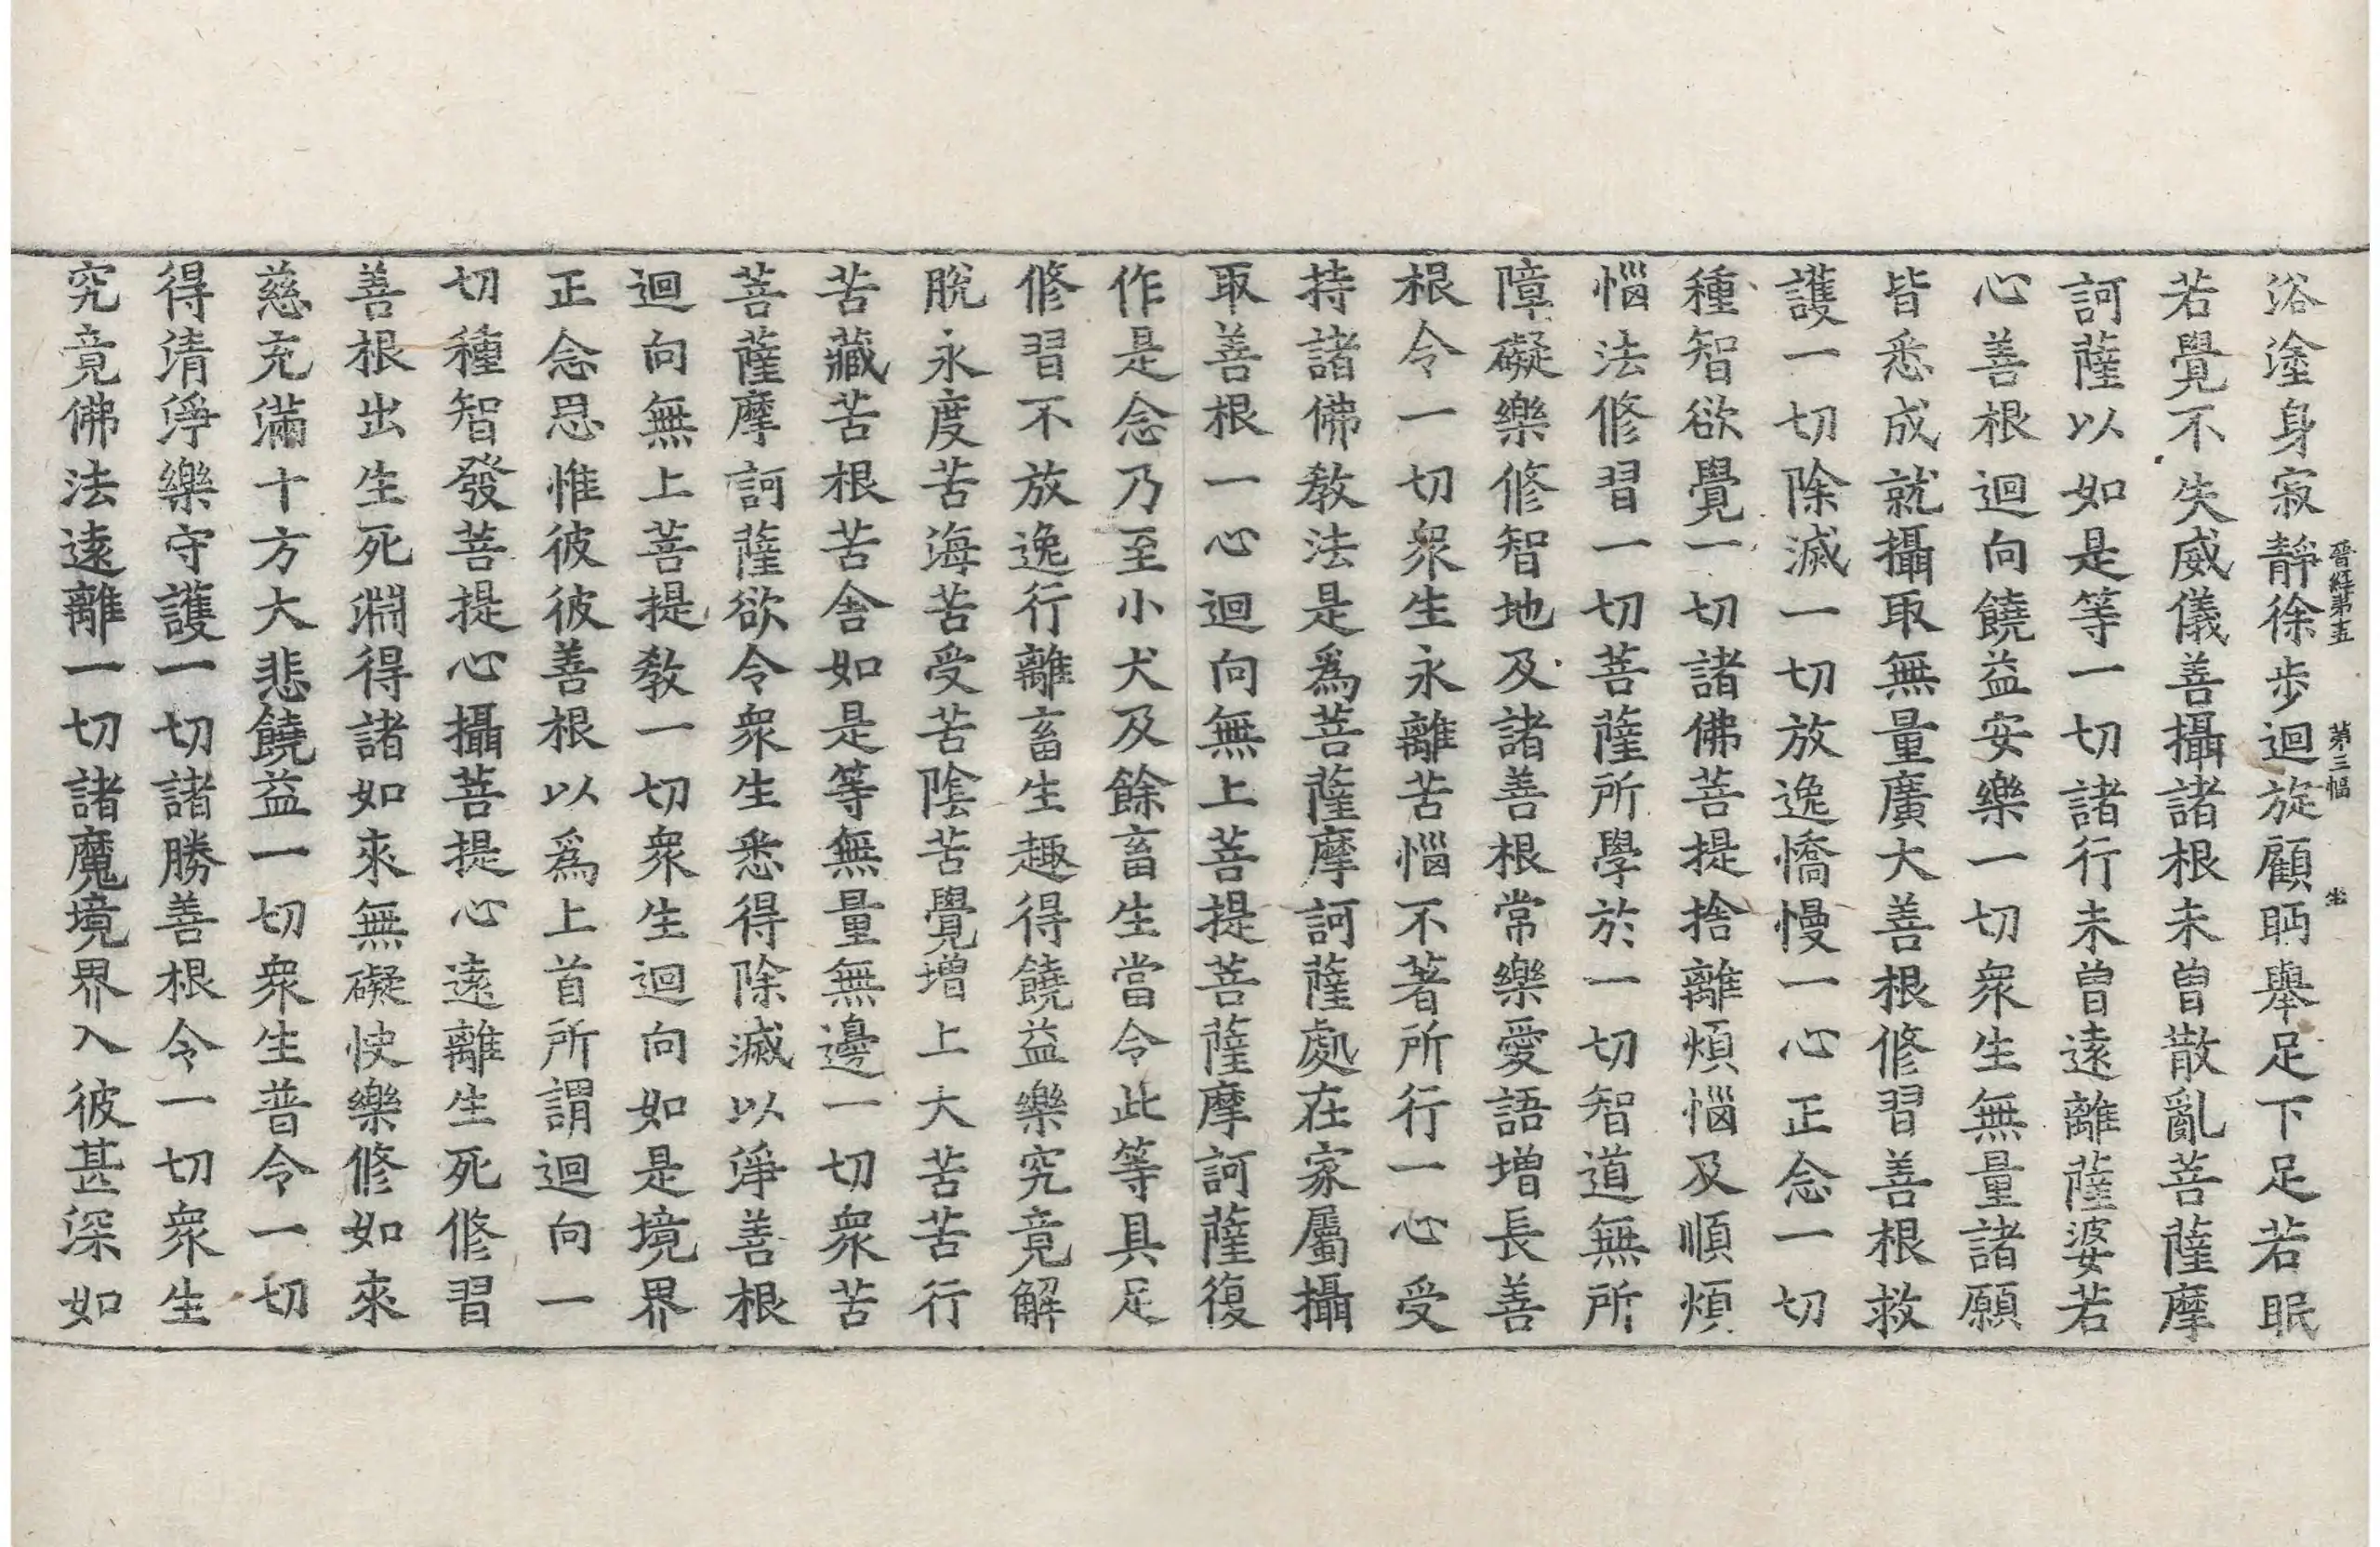 浴塗身寂靜徐步迴旋顧眄舉足下足若眠
晉經第十五　第三幅　坐
若覺不失威儀善攝諸根未曾散亂菩薩摩
訶薩以如是等一切諸行未曾遠離薩婆若
心善根迴向饒益安樂一切衆生無量諸願
皆悉成就攝取無量廣大善根修習善根救
護一切除滅一切放逸憍慢一心正念一切
種智欲覺一切諸佛菩提捨離煩惱及順煩
惱法修習一切菩薩所學於一切智道無所
障礙樂修智地及諸善根常樂愛語增長善
根令一切衆生永離苦惱不著所行一心受
持諸佛敎法是爲菩薩摩訶薩處在家屬攝
取善根一心迴向無上菩提菩薩摩訶薩復
作是念乃至小犬及餘畜生當令此等具足
修習不放逸行離畜生趣得饒益樂究竟解
脫永度苦海苦受苦陰苦覺增上大苦苦行
苦藏苦根苦舍如是等無量無邊一切衆苦
菩薩摩訶薩欲令衆生悉得除滅以淨善根
迴向無上菩提敎一切衆生迴向如是境界
正念思惟彼彼善根以爲上首所謂迴向一
切種智發菩提心攝菩提心遠離生死修習
善根出生死淵得諸如來無礙快樂修如來
慈充滿十方大悲饒益一切衆生普令一切
得清淨樂守護一切諸勝善根令一切衆生
究竟佛法遠離一切諸魔境界入彼甚深如